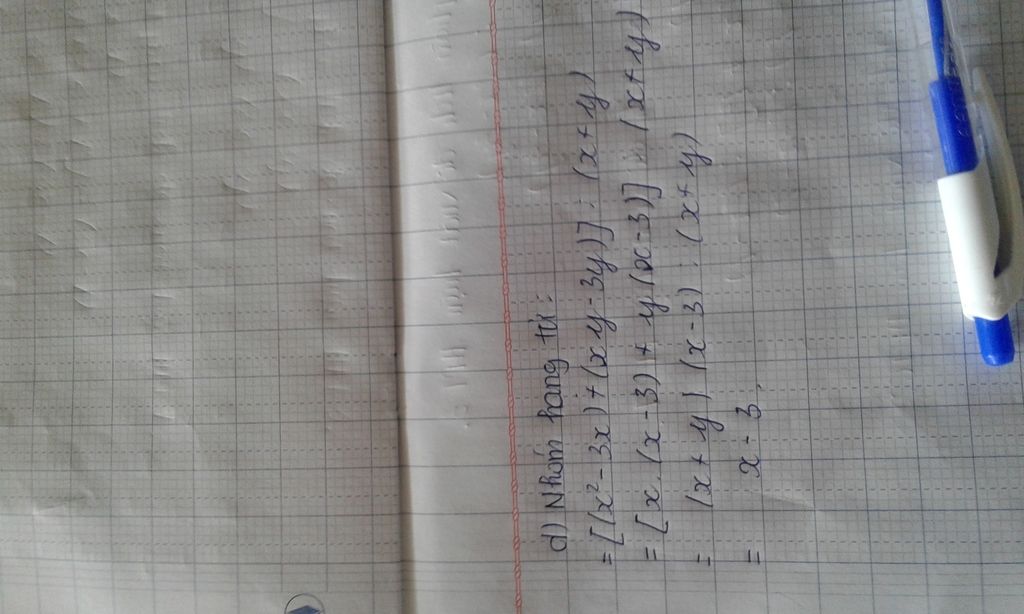 d) Nhóm hạng tử:
= [(x² - 3x) + (xy - 3y)] : (x + y)
= [x.(x - 3) + y(x - 3)] : (x + y)
= (x + y) (x - 3) : (x + y)
= x - 3.